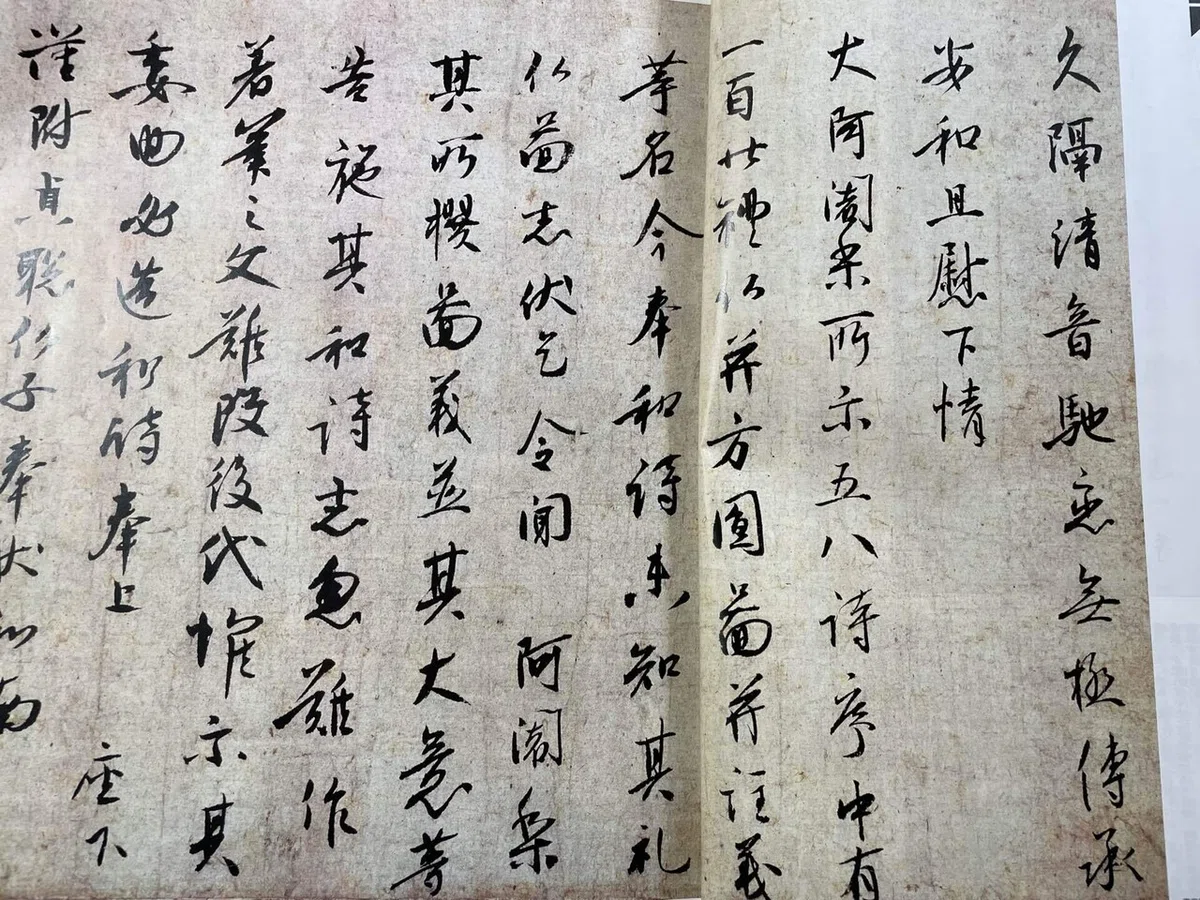 久隔清音馳恋無極傳承
安和且慰下情
大阿闍梨所示五八詩序中有
一百廿禮仏并方圓圖并註義
等名今奉和詩未知其礼
仏圖志伏乞令聞　阿闍梨
其所撰圖義並其大意等
告施其和詩者忽難作
著筆之文難改後代惟示其
委曲必造和詩奉上　座下
謹附貞聡仏子奉状和南